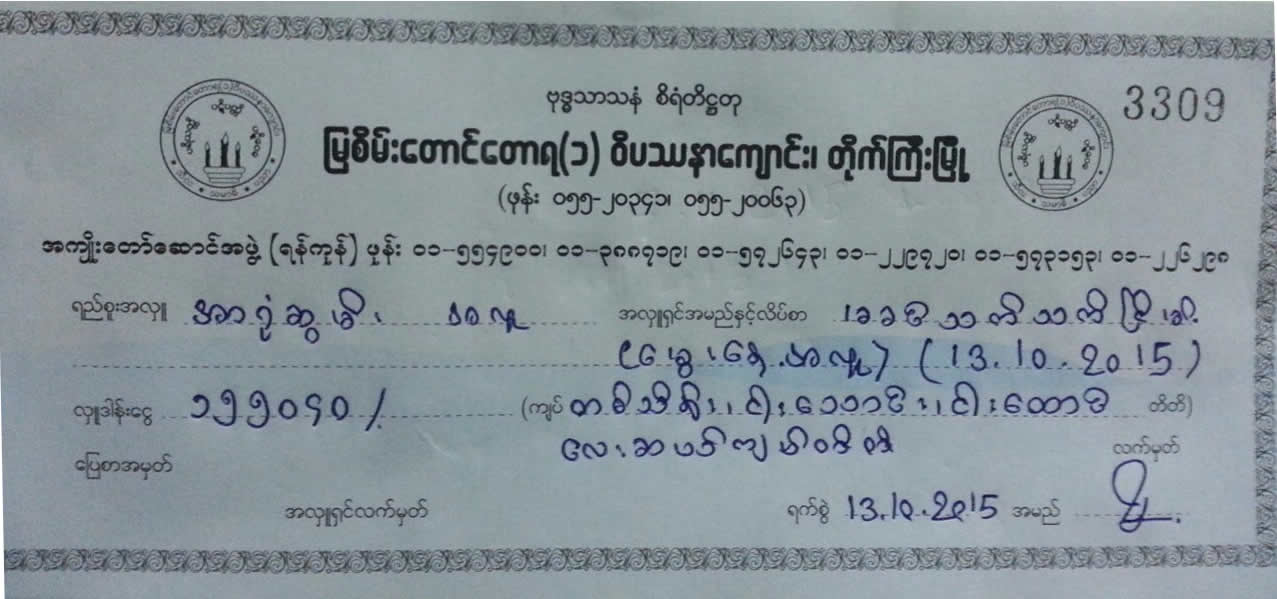 ဗုဒ္ဓသာသနံ စိရံတိဋ္ဌတု
3309
မြစိမ်းတောင်တောရ(၁) ဝိပဿနာကျောင်း၊ တိုက်ကြီးမြို့
(ဖုန်း ၀၅၅-၂၀၃၄၁၊ ၀၅၅-၂၀၀၆၃)
အကျိုးတော်ဆောင်အဖွဲ့ (ရန်ကုန်) ဖုန်း ၀၁-၅၅၄၉၀၀၊ ၀၁-၃၈၈၇၁၉၊ ၀၁-၅၇၂၆၄၃၊ ၀၁-၂၂၉၇၂၀၊ ၀၁-၅၇၃၁၅၃၊ ၀၁-၂၂၆၂၉၈
ရည်စူးအလှူ အာရုံဆွမ်း အလှူ အလှူရှင်အမည်နှင့်လိပ်စာ
(မွေးနေ့အလှူ) (13.10.2015)
လှူဒါန်းငွေ ၁၅၅၀၄၀/ (ကျပ် တစ်သိန်း၊ ငါးသောင်း၊ ငါးထောင် တိတိ)
လေးဆယ်ကျပ်
ပြေစာအမှတ် လက်မှတ်
အလှူရှင်လက်မှတ် ရက်စွဲ 13.10.2015 အမည်